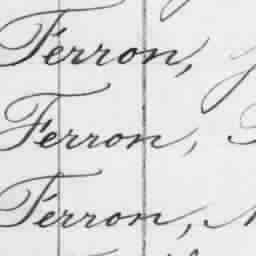 Ferron,
Ferron,
Ferron,